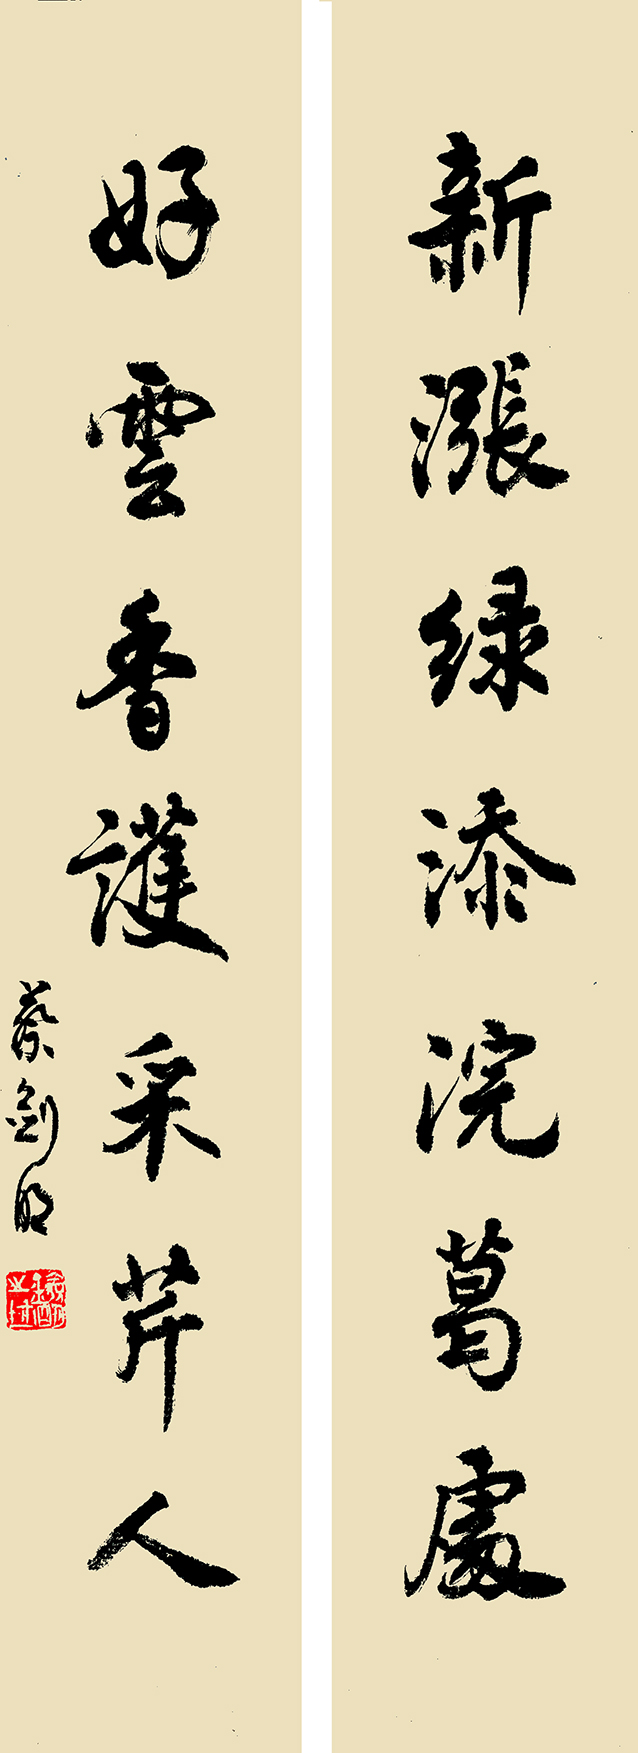 新漲绿添浣葛處
好雲香護采芹人
蔡劍明